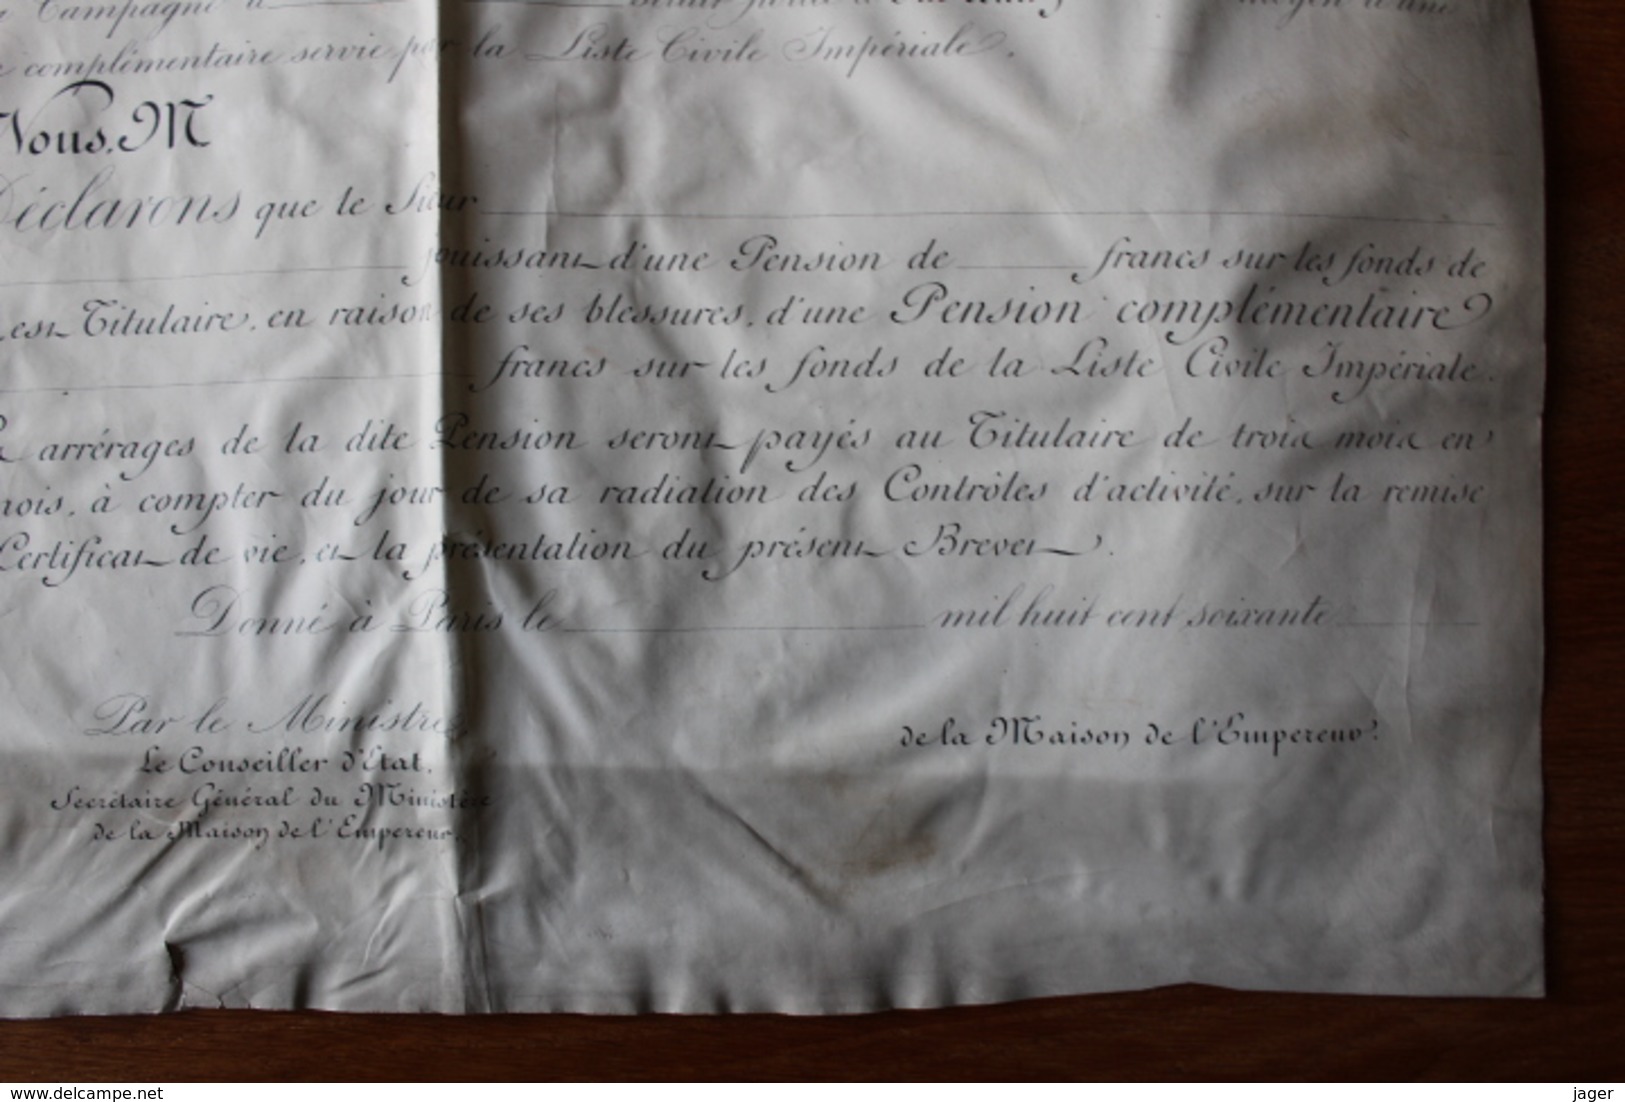 Campagne à
complémentaire servie par la Liste Civile Impériale.
Nous, M
Déclarons que le Sieur
jouissant d'une Pension de francs sur les fonds de
est Titulaire, en raison de ses blessures, d'une Pension complémentaire
francs sur les fonds de la Liste Civile Impériale.
arrérages de la dite Pension seront payés au Titulaire de trois mois en
mois, à compter du jour de sa radiation des Contrôles d'activité, sur la remise
Certificat de vie, et la présentation du présent Brevet.
Donné à Paris le mil huit cent soixante
Par le Ministre
Le Conseiller d'Etat,
Secrétaire Général du Ministère
de la Maison de l'Empereur,
de la Maison de l'Empereur.
www.delcampe.net
jager